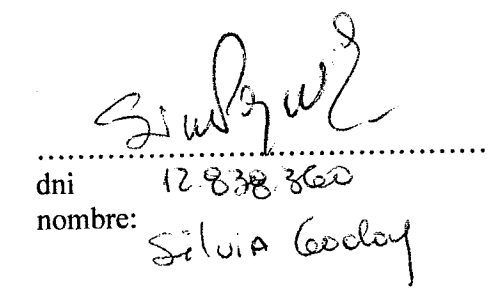 dni 12.838.360
nombre:
Silvia Godoy